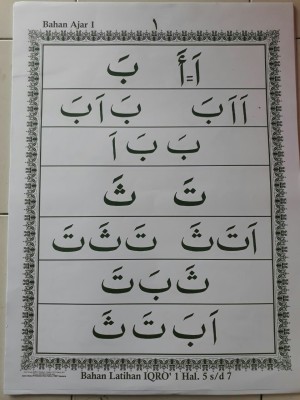 Bahan Ajar 1
١
اَ=أَ بَ
اَ اَ بَ بَ اَ بَ
بَ بَ اَ
تَ ثَ
اَ تَ ثَ تَ ثَ تَ
ثَ بَ تَ
اَ بَ تَ ثَ
Bahan Latihan IQRO' 1 Hal. 5 s/d 7